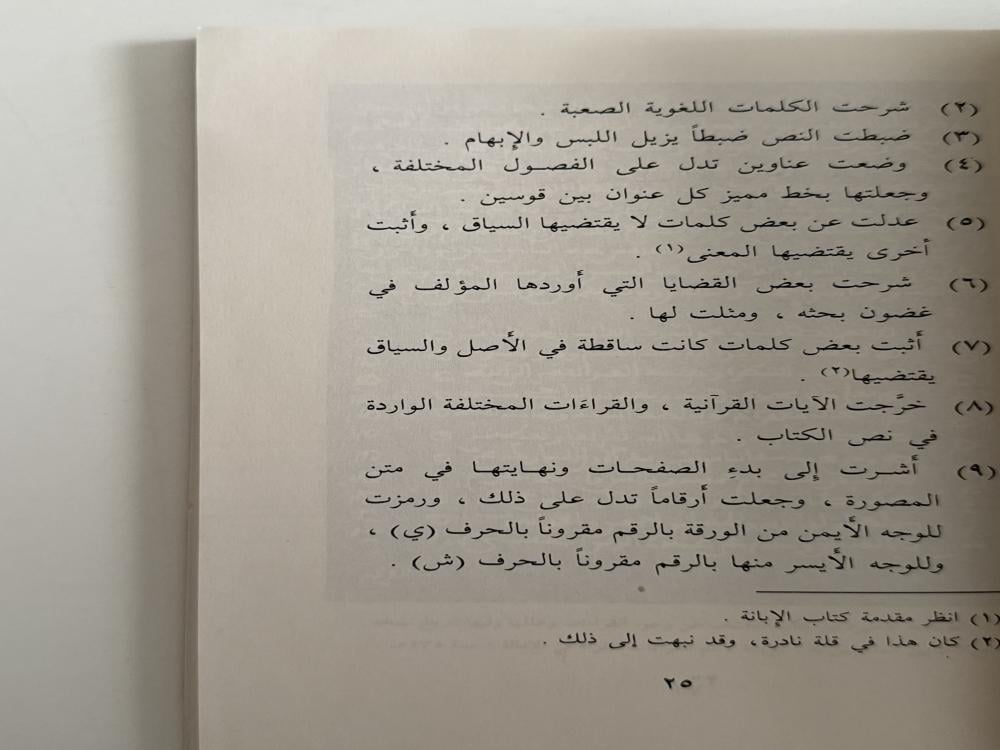 (٢) شرحت الكلمات اللغوية الصعبة .
(٣) ضبطت النص ضبطاً يزيل اللبس والإبهام .
(٤) وضعت عناوين تدل على الفصول المختلفة ،
وجعلتها بخط مميز كل عنوان بين قوسين .
(٥) عدلت عن بعض كلمات لا يقتضيها السياق ، وأثبت
أخرى يقتضيها المعنى(١) .
(٦) شرحت بعض القضايا التي أوردها المؤلف في
غضون بحثه ، ومثلت لها .
(٧) أثبت بعض كلمات كانت ساقطة في الأصل والسياق
يقتضيها(٢) .
(٨) خرَّجت الآيات القرآنية ، والقراءَات المختلفة الواردة
في نص الكتاب .
(٩) أشرت إلى بدءِ الصفحات ونهايتها في متن
المصورة ، وجعلت أرقاماً تدل على ذلك ، ورمزت
للوجه الأيمن من الورقة بالرقم مقروناً بالحرف (ي) ،
وللوجه الأيسر منها بالرقم مقروناً بالحرف (ش) .
(١) انظر مقدمة كتاب الإبانة .
(٢) كان هذا في قلة نادرة، وقد نبهت إلى ذلك .
٢٥